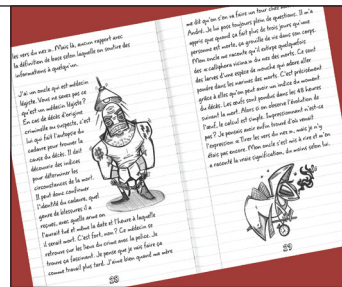 les vers du nez ». Mais là, aucun rapport avec
la définition de base selon laquelle on soutire des
informations à quelqu'un.
J'ai un oncle qui est médecin
légiste. Vous ne savez pas ce
qu'est un médecin légiste ?
En cas de décès d'origine
criminelle ou suspecte, c'est
lui qui fait l'autopsie du
cadavre pour trouver la
cause du décès. Il doit
découvrir des indices
pour déterminer les
circonstances de la mort.
Il peut donc confirmer
l'identité du cadavre, quel
genre de blessures il a
reçues, avec quelle arme on
l'aurait tué et même la date et l'heure à laquelle
il serait mort. C'est fort, non ? Ce médecin se
retrouve sur les lieux du crime avec la police. Je
trouve ça fascinant. Je pense que je vais faire ça
comme travail plus tard. J'aime bien quand ma mère
28
me dit qu'on s'en va faire un tour chez mon
André. Je lui pose toujours plein de questions. Il m'a
appris que quand ça fait plus de trois jours qu'une
personne est morte, ça grouille de vie dans son corps.
Mon oncle me raconte qu'il extirpe quelquefois
des « calliphora vicina » du nez des morts. Ce sont
des larves d'une espèce de mouche qui adore aller
pondre dans les narines des morts. C'est précisément
grâce à elles qu'on peut avoir un indice du moment
du décès. Les œufs sont pondus dans les 48 heures
suivant la mort. Alors si on observe l'évolution de
l'œuf, le calcul est simple. Impressionnant n'est-ce
pas ? Je pensais avoir enfin trouvé d'où venait
l'expression « Tirer les vers du nez », mais je n'y
étais pas encore. Mon oncle s'est mis à rire et m'en
a raconté la vraie signification, du moins selon lui.
29